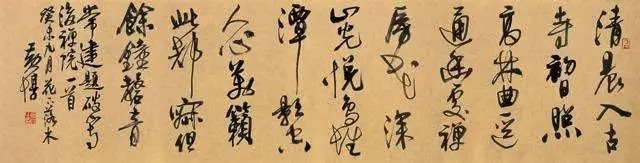 清晨入古
寺初日照
高林曲逕
通幽處禅
房花深
山光悦鳥性
潭影空
人心萬籟
此都寂但
餘鐘磬音
常建題破山寺
後禅院一首
癸未九月花下落木